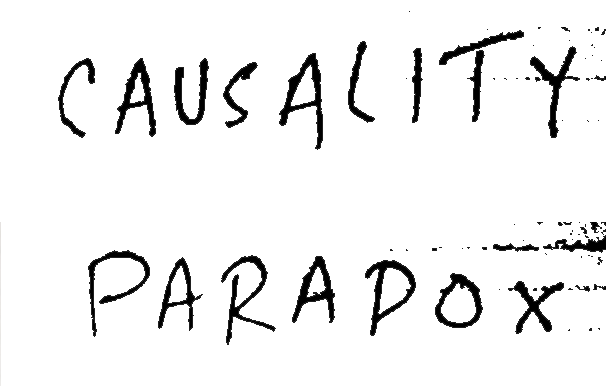 CAUSALITY
PARADOX